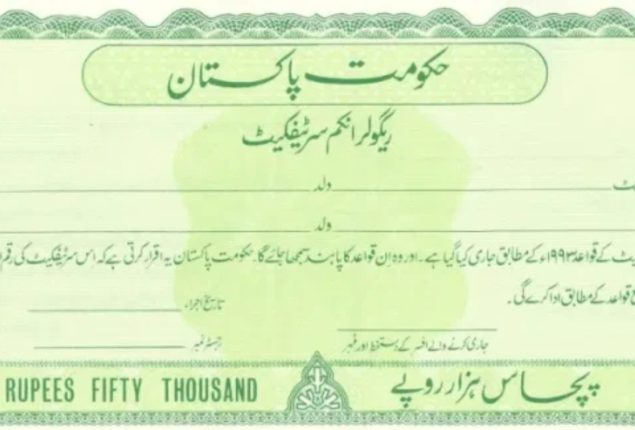 حکومت پاکستان
ریگولر انکم سرٹیفکیٹ
ولد
ولد
کے قواعد ۱۹۹۳ء کے مطابق جاری کیا گیا ہے۔ اور وہ ان قواعد کا پابند سمجھا جائے گا۔ حکومت پاکستان یہ اقرار کرتی ہے کہ اس سرٹیفکیٹ کی رقم
قواعد کے مطابق ادا کرے گی۔
تاریخ اجراء
جاری کرنے والے افسر کے دستخط اور مہر
رجسٹر نمبر
RUPEES FIFTY THOUSAND پچاس ہزار روپے